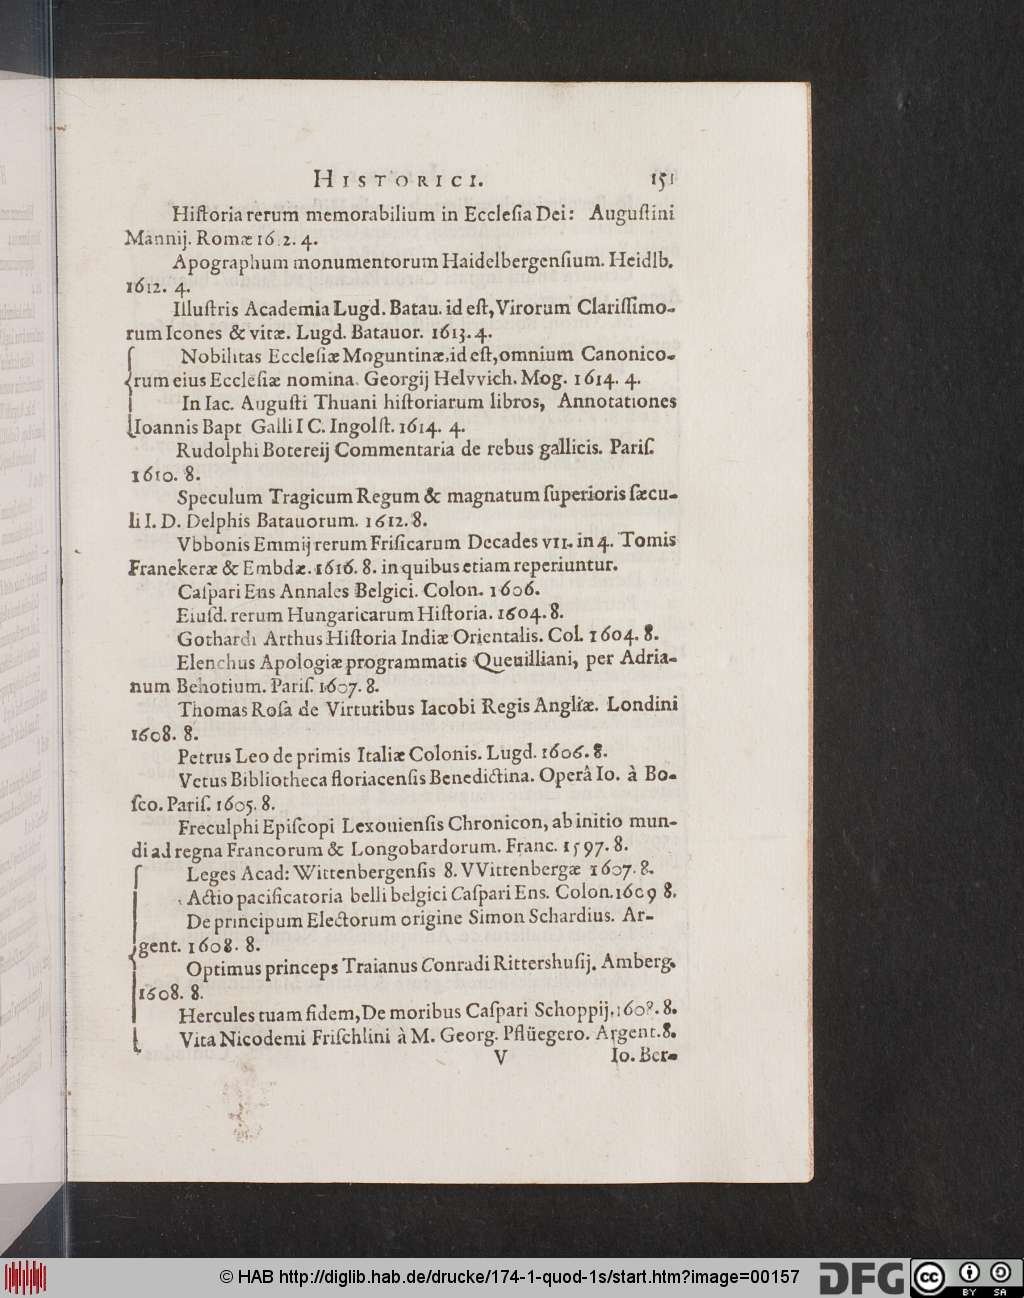 HISTORICI. 151
Hiſtoria rerum memorabilium in Eccleſia Dei: Auguſtini
Mannij. Romæ 16 2. 4.
Apographum monumentorum Haidelbergenſium. Heidlb.
1612. 4.
Illuſtris Academia Lugd. Batau. id eſt, Virorum Clariſſimo-
rum Icones & vitæ. Lugd. Batauor. 1613. 4.
Nobilitas Eccleſiæ Moguntinæ, id eſt, omnium Canonico-
rum eius Eccleſiæ nomina. Georgij Helvvich. Mog. 1614. 4.
In Iac. Auguſti Thuani hiſtoriarum libros, Annotationes
Ioannis Bapt Galli I C. Ingolſt. 1614. 4.
Rudolphi Botereij Commentaria de rebus gallicis. Pariſ.
1610. 8.
Speculum Tragicum Regum & magnatum ſuperioris ſæcu-
li I. D. Delphis Batauorum. 1612. 8.
Vbbonis Emmij rerum Friſicarum Decades VII. in 4. Tomis
Franekeræ & Embdæ. 1616. 8. in quibus etiam reperiuntur.
Caſpari Ens Annales Belgici. Colon. 1606.
Eiuſd. rerum Hungaricarum Hiſtoria. 1604. 8.
Gothardi Arthus Hiſtoria Indiæ Orientalis. Col. 1604. 8.
Elenchus Apologiæ programmatis Queuilliani, per Adria-
num Behotium. Pariſ. 1607. 8.
Thomas Roſa de Virtutibus Iacobi Regis Angliæ. Londini
1608. 8.
Petrus Leo de primis Italiæ Colonis. Lugd. 1606. 8.
Vetus Bibliotheca floriacenſis Benedictina. Operâ Io. à Bo-
ſco. Pariſ. 1605. 8.
Freculphi Epiſcopi Lexouienſis Chronicon, ab initio mun-
di ad regna Francorum & Longobardorum. Franc. 1597. 8.
Leges Acad: Wittenbergenſis 8. VVittenbergæ 1607. 8.
Actio pacificatoria belli belgici Caſpari Ens. Colon. 1609 8.
De principum Electorum origine Simon Schardius. Ar-
gent. 1608. 8.
Optimus princeps Traianus Conradi Rittershuſij. Amberg.
1608. 8.
Hercules tuam fidem, De moribus Caſpari Schoppij. 1608. 8.
Vita Nicodemi Friſchlini à M. Georg. Pflüegero. Argent. 8.
V Io. Ber-
© HAB http://diglib.hab.de/drucke/174-1-quod-1s/start.htm?image=00157
DFG
cc BY SA